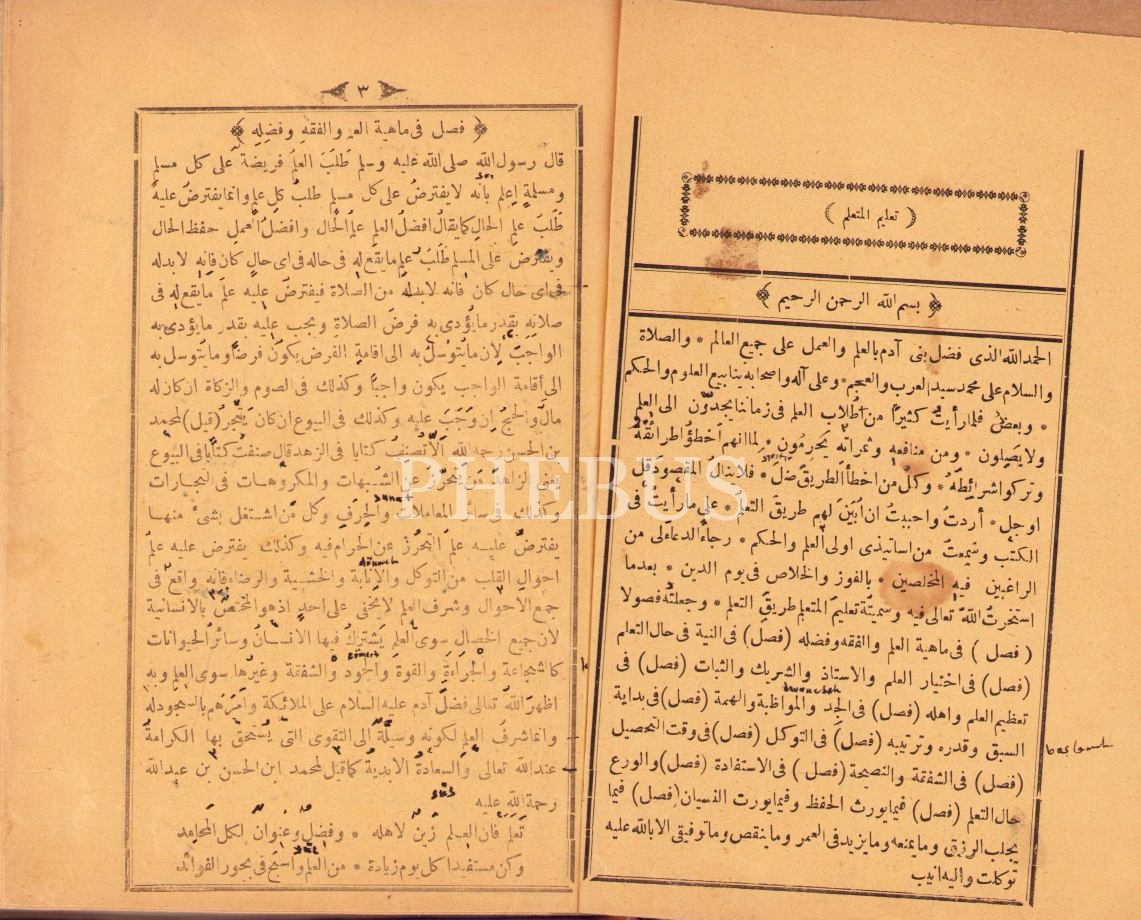 تعليم المتعلم
بسم الله الرحمن الرحيم
الحمد لله الذى فضل بنى آدم بالعلم والعمل على جميع العالم * والصلاة
والسلام على محمد سيد العرب والعجم * وعلى آله واصحابه ينابيع العلوم والحكم
* وبعض فلما رأيت كثيرا من طلاب العلم فى زماننا يجدون الى العلم
ولا يصلون * ومن منافعه وثمراته يحرمون * لما انهم اخطؤا طرائقه
وتركوا شرائطه * وكل من اخطأ الطريق ضل * فلا ينال المقصود قل
او جل * أردت واحببت ان ابين لهم طريق التعلم * على ما رأيت فى
الكتب وسمعت من اساتيذى اولى العلم والحكم * رجاء الدعاء لى من
الراغبين فيه المخلصين * بالفوز والخلاص فى يوم الدين * بعدما
استخرت الله تعالى فيه وسميته تعليم المتعلم طريق التعلم * وجعلته فصولا
( فصل ) فى ماهية العلم والفقه وفضله (فصل) فى النية فى حال التعلم
(فصل) فى اختيار العلم والاستاذ والشريك والثبات (فصل) فى
تعظيم العلم واهله (فصل) فى الجد والمواظبة والهمة (فصل) فى بداية
السبق وقدره وترتيبه (فصل) فى التوكل (فصل) فى وقت التحصيل
(فصل) فى الشفقة والنصيحة (فصل ) فى الاستفادة (فصل) والورع
حال التعلم (فصل) فيما يورث الحفظ وفيما يورت النسيان (فصل) فيما
يجلب الرزق وما يمنعه وما يزيد فى العمر وما ينقص وما توفيقى الا بالله عليه
توكلت واليه انيب
٣
فصل فى ماهية العلم والفقه وفضله
قال رسول الله صلى الله عليه وسلم طلب العلم فريضة على كل مسلم
ومسلمة اعلم بانه لا يفترض على كل مسلم طلب كل علم وانما يفترض عليه
طلب علم الحال كما يقال افضل العلم علم الحال وافضل العمل حفظ الحال
ويفترض على المسلم طلب علم ما يقع له فى حاله فى اى حال كان فانه لابد له
فى اى حال كان فانه لابد له من الصلاة فيفترض عليه علم ما يقع له فى
صلاته بقدر ما يؤدى به فرض الصلاة ويجب عليه بقدر ما يؤدى به
الواجب لان ما يتوسل به الى اقامة الفرض يكون فرضا وما يتوسل به
الى أقامة الواجب يكون واجبا وكذلك فى الصوم والزكاة ان كان له
مال والحج ان وجب عليه وكذلك فى البيوع ان كان يتجر (قيل) لمحمد
بن الحسن رحمه الله ألا تصنف كتابا فى الزهد قال صنفت كتابا فى البيوع
يعنى الزاهد من يتحرز عن الشبهات والمكروهات فى التجارات
sunat
وكذلك فى سائر المعاملات والحرف وكل من اشتغل بشئ منها
يفترض عليه علم التحرز عن الحرام فيه وكذلك يفترض عليه علم
احوال القلب من التوكل والانابة والخشية والرضاء فانه واقع فى
جمع الاحوال وشرف العلم لا يخفى على احد اذ هو المختص بالانسانية
لان جميع الخصال سوى العلم يشترك فيها الانسان وسائر الحيوانات
cömert
كالشجاعة والجراءة والقوة والجود والشفقة وغيرها سوى العلم وبه
اظهر الله تعالى فضل آدم عليه السلام على الملائكة وأمرهم بالسجود له
وانما شرف العلم لكونه وسيلة الى التقوى التى يستحق بها الكرامة
عند الله تعالى والسعادة الابدية كما قيل لمحمد ابن الحسن بن عبد الله
رحمة الله عليه
تعلم فان العلم زين لاهله * وفضل وعنوان لكل المحامد
وكن مستفيدا كل يوم زيادة * من العلم واسبح فى بحور الفوائد
PHEBUS